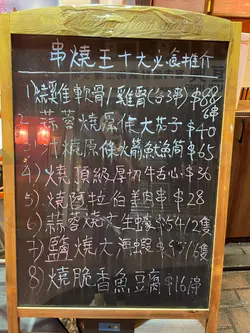 串燒王十大必食推介
1) 燒雞軟骨/雞腎(合3串) $88
2) 蒜蓉燒原條大茄子 $40
3) 汁燒原條火箭魷魚筒 $65
4) 燒頂級厚切牛舌心 $36
5) 燒阿拉伯羊肉串 $28
6) 蒜蓉燒大生蠔 $54/2隻
7) 鹽燒大海蝦 /6隻
8) 燒脆香魚豆腐 $16/串